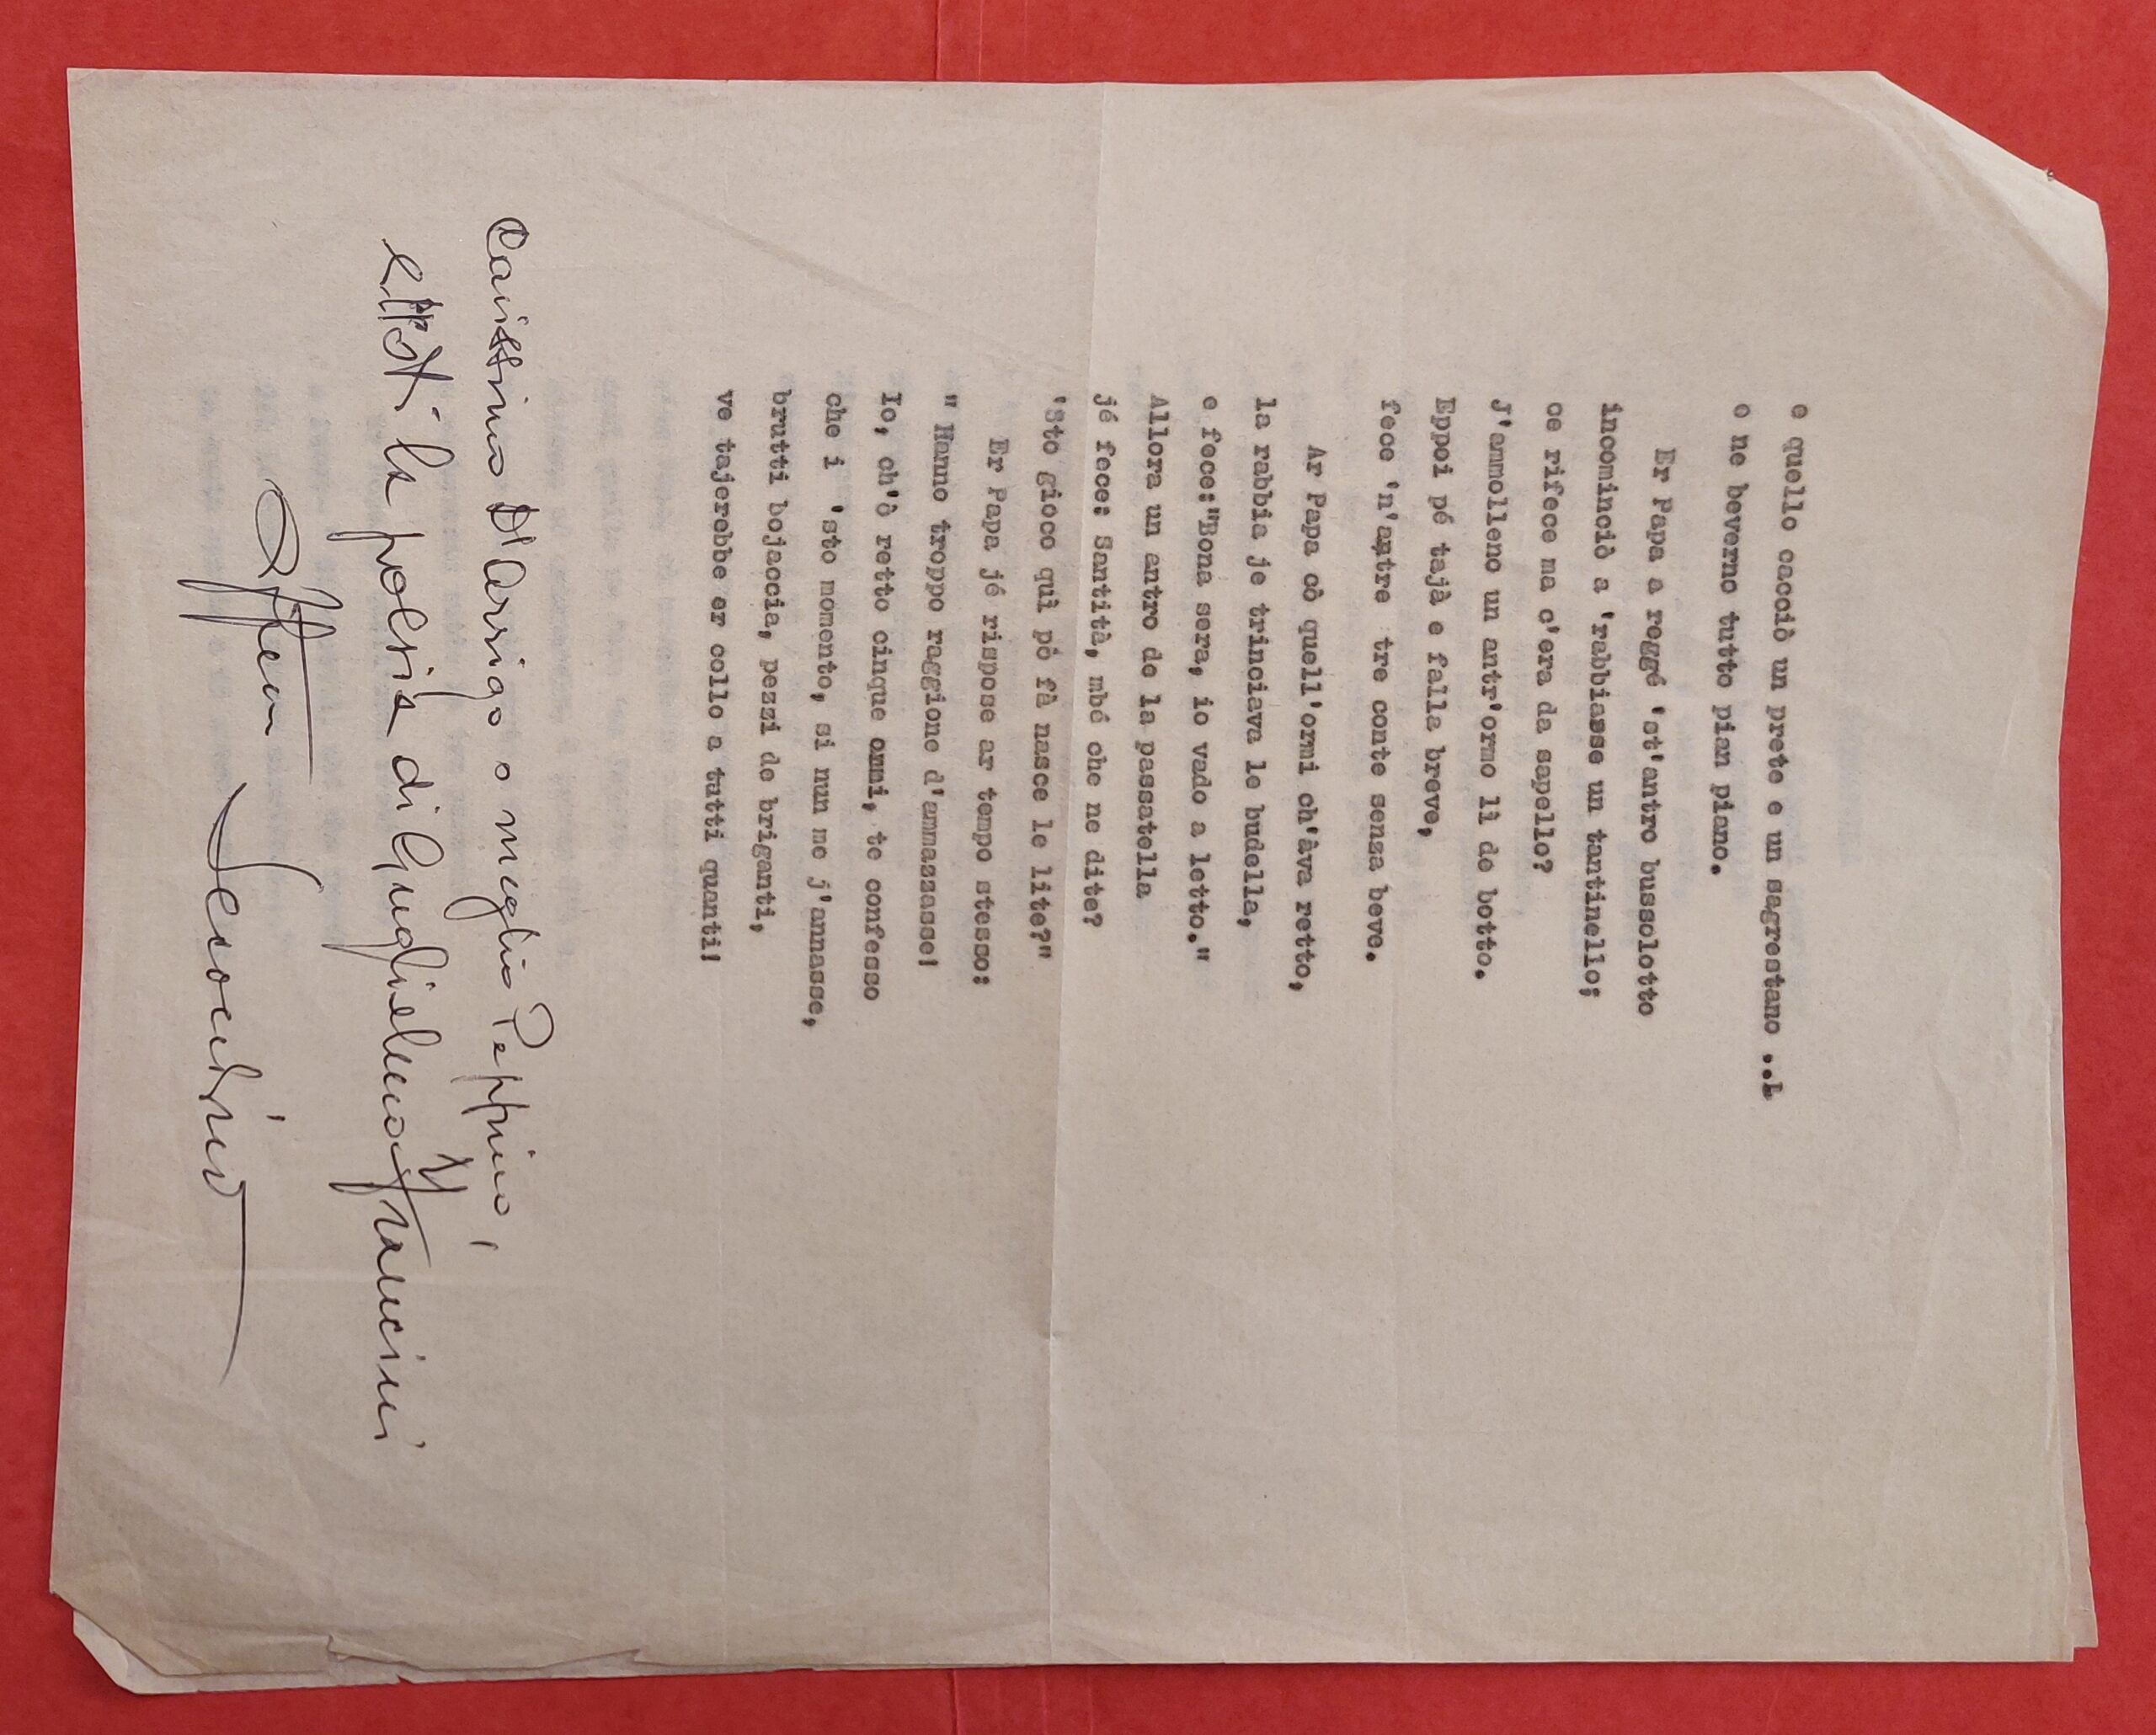 e quello cacciò un prete e un sagrestano ..l
e ne beverno tutto pian piano.
Er Papa a reggé 'st'antro bussolotto
incominciò a 'rabbiasse un tantinello;
ce rifece ma c'era da sapello?
J'ammolleno un antr'ormo lì de botto.
Eppoi pé tajà e falla breve,
fece 'n'antre tre conte senza beve.
Ar Papa cò quell'ormi ch'àva retto,
la rabbia je trinciava le budella,
e fece:"Bona sera, io vado a letto."
Allora un antro de la passatella
jé fece: Santità, mbé che ne dite?
'Sto gioco quì pò fà nasce le lite?"
Er Papa jé rispose ar tempo stesso:
" Hanno troppo raggione d'ammazzasse!
Io, ch'ò retto cinque ormi, te confesso
che i 'sto momento, si nun me j'annasse,
brutti bojaccia, pezzi de briganti,
ve tajerebbe er collo a tutti quanti!
Carissimo D'Arrigo o meglio Peppino,
eccoti la poesia di Guglielmo Mancini
Aff.mo